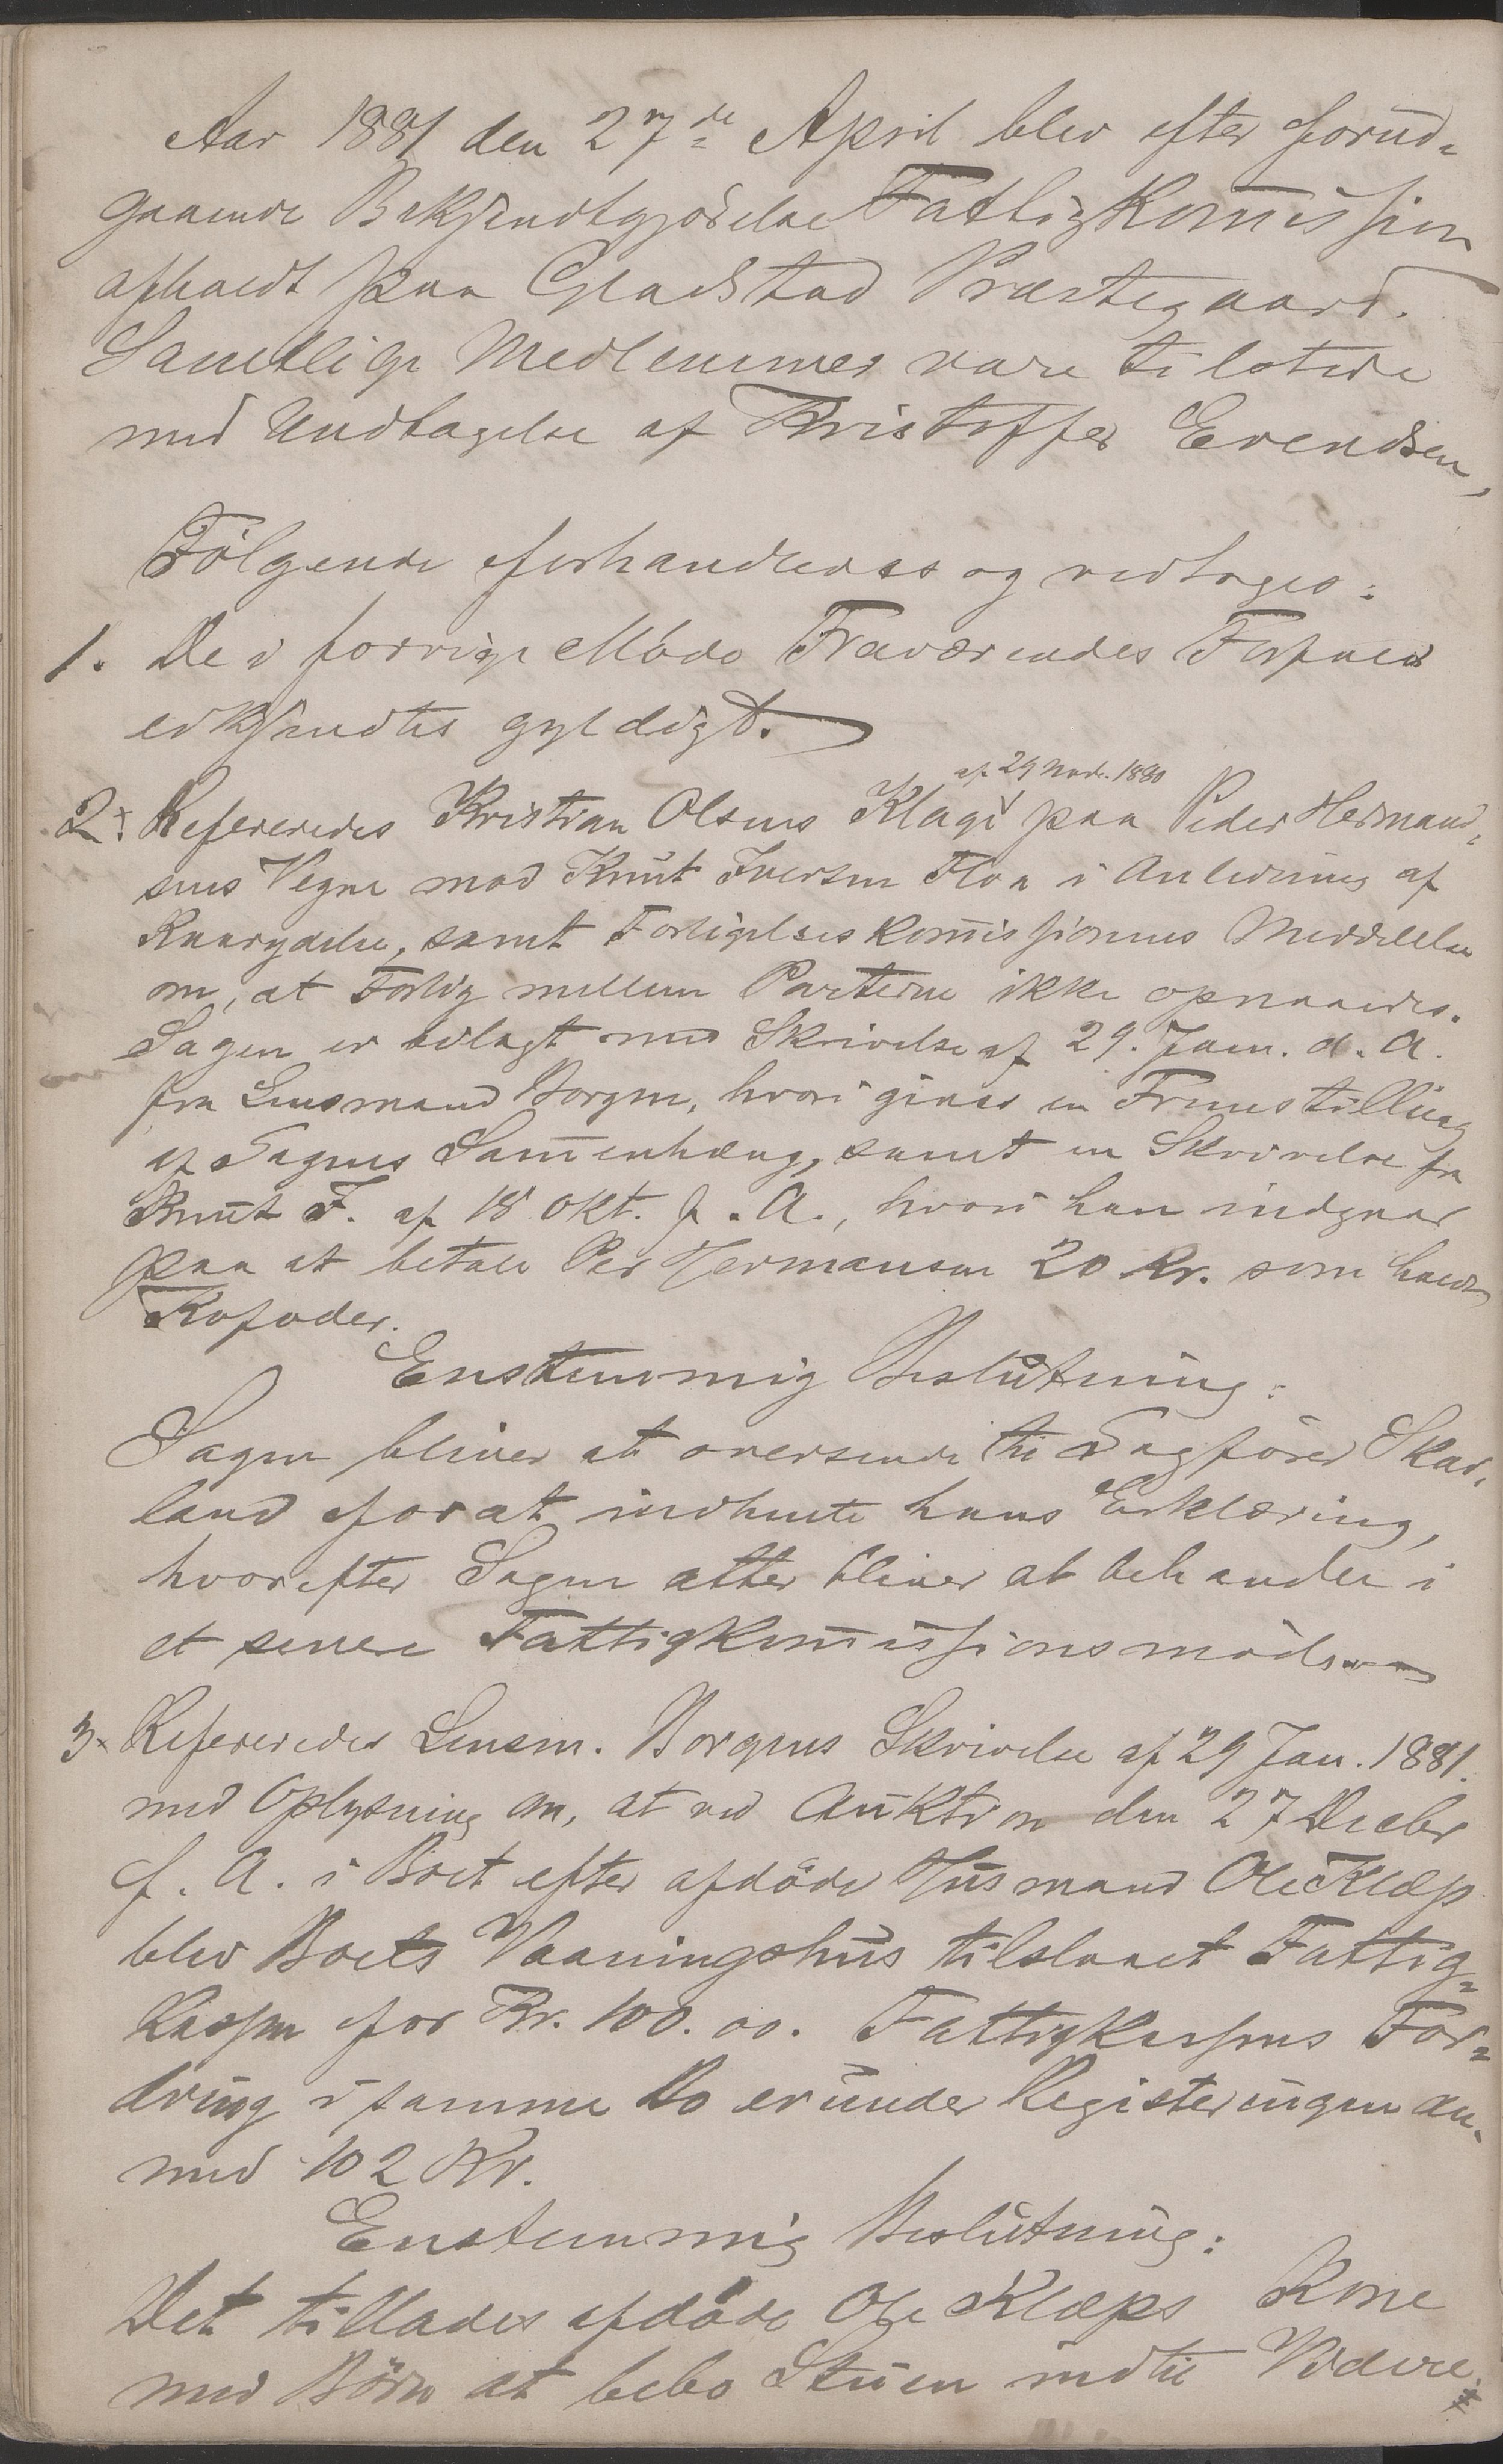 Aar 1881 den 27de April blev efter forud-
gaaende Bekjendtgjørelse Fattigkommission
afholdt paa Gladstad Præstegaard.
Samtlige Medlemmer vare tilstede
med Undtagelse af Kristoffer Evendsen,
Følgende forhandledes og vedtoges:
1. De i forrige Møde Fraværendes Forfald
erkjendtes gyldigt.
af 29 Novb. 1880
2. Refereredes Kristian Olsens Klage paa Peder Hermand-
sens Vegne mod Knut Iversen Floa i Anledning af
samt Forligelseskommissionens Meddelelse
om, at Forlig mellem Parterne ikke opnaaedes.
Sagen er bilagt med Skrivelse af 29. Jan. d. A.
fra Lensmand Borgen, hvori gives en Fremstilling
af Sagens Sammenhæng, samt en Skrivelse fra
Knut F. af 18 Okt. f. A., hvori han indgaar
paa at betale Per Hermansen 20 Kr. som hans
Enstemmig Beslutning:
Sagen bliver at oversende til Sagfører Skar-
land for at indhente hans Erklæring,
hvorefter Sagen atter bliver at behandle i
et senere Fattigkommissionsmøde.
3. Refereredes Lensm. Borgens Skrivelse af 29 Jan. 1881.
med Oplysning om, at ved Auktion den 27 Decbr
f. A. i Boet efter afdøde Husmand Ole Klæp
blev Boets Vaaningshus tilslaaet Fattig-
kassen for Kr. 100.00. Fattigkassens For-
dring i samme Bo er under Registeringen an-
med 102 Kr.
Enstemmig Beslutning:
Det tillades afdøde Ole Klæps Kone
med Børn at bebo Stuen indtil Videre.